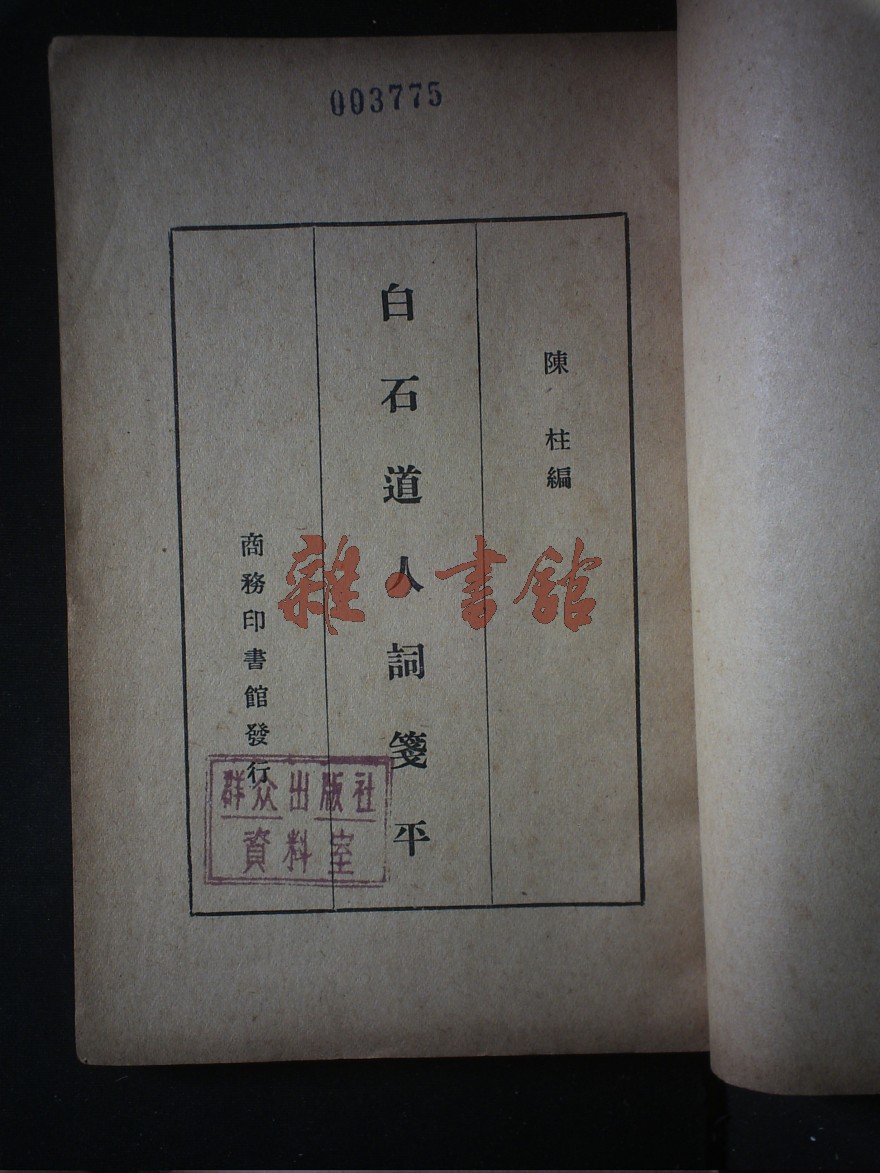 003775
陳柱編
白石道人詞箋平
商務印書館發行
雜·書館
群众出版社
資料室